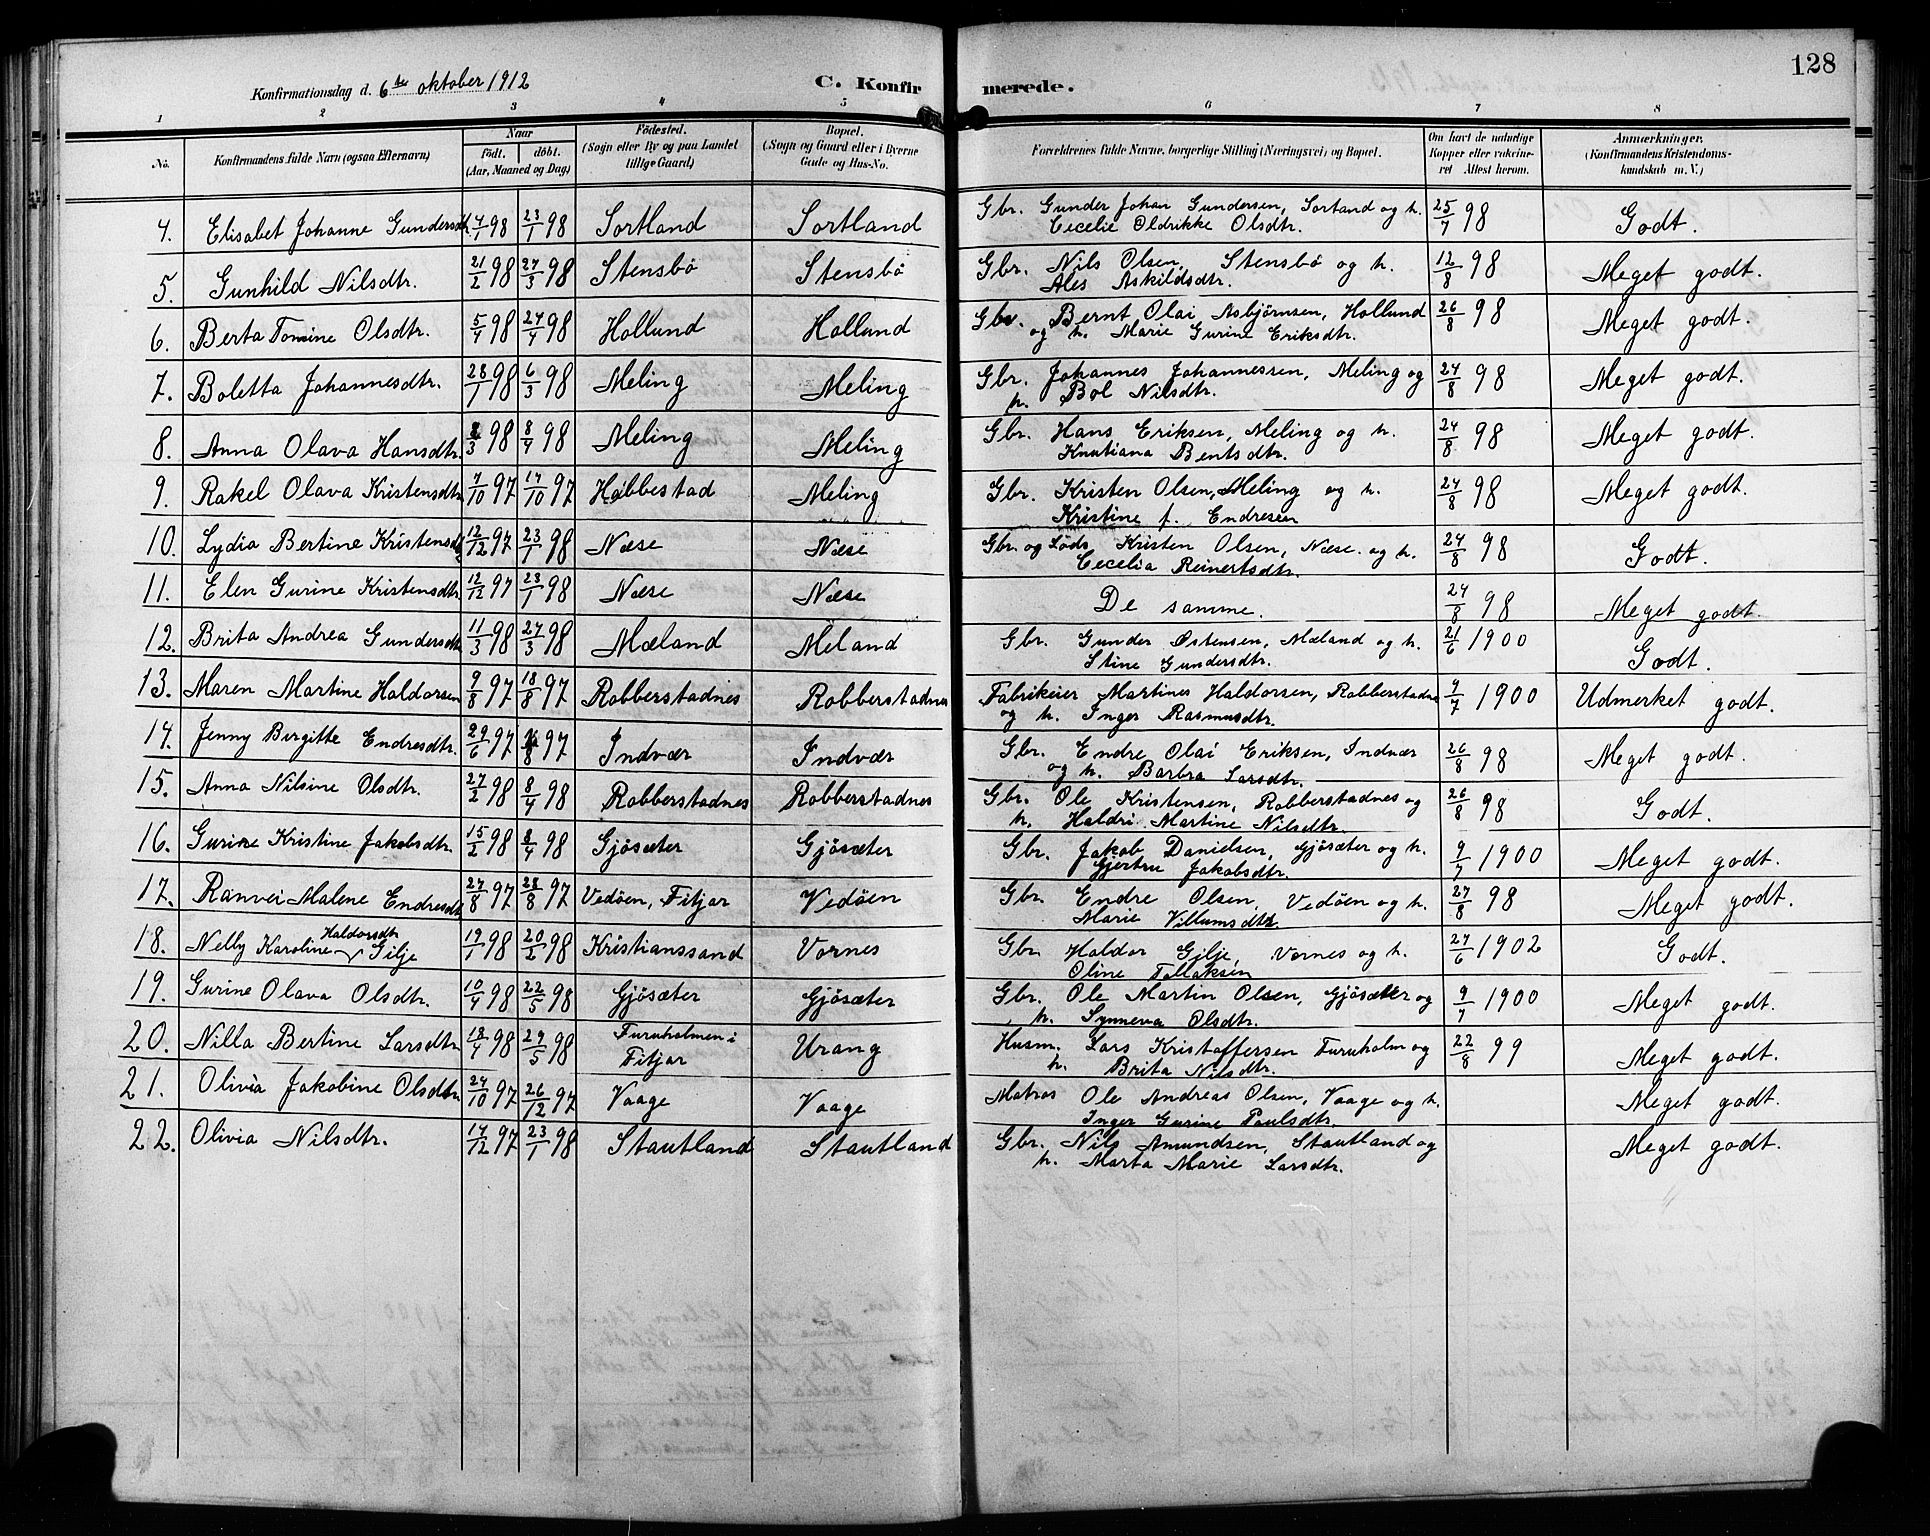 128
Konfirmationsdag d. 6te oktober 1912 C. Konfirmerede.
1 2 3 4 5 6 7 8
No. Konfirmandens fulde Navn (ogsaa Efternavn) Naar födt. döbt. (Aar, Maaned og Dag) Födested. (Sogn eller By og paa Landet tillige Gaard) Bopæl. (Sogn og Gaard eller i Byerne Gade og Hus-No. Forældrenes fulde Navne, borgerlige Stilling (Næringsvei) og Bopæl. Om havt de naturlige Kopper eller vakcineret Attest herom. Anmærkninger. (Konfirmandens Kristendomskundskab m. V.)
4. Elisabet Johanne Gundersdtr. 4/1 98 23/1 98 Sortland Sortland Gbr. Gunder Johan Gundersen, Sortand og h. 25/7 98 Godt.
Cecelie Oldrikke Olsdtr.
5. Gunhild Nilsdtr. 21/2 98 27/3 98 Stensbö Stensbö Gbr. Nils Olsen, Stensbö og h. 12/8 98 Meget godt.
Ales Askildsdtr.
6. Berta Tomine Olsdtr. 5/4 98 24/4 98 Hollund Hollund Gbr. Bernt Olai Asbjörnsen, Hollund 26/8 98 Meget godt.
og h. Marie Gurine Eriksdtr.
7. Boletta Johannesdtr. 28/1 98 6/3 98 Meling Meling Gbr. Johannes Johannessen, Meling og 24/8 98 Meget godt.
h. Bol Nilsdtr.
8. Anna Olava Hansdtr. /3 98 8/4 98 Meling Meling Gbr. Hans Eriksen, Meling og h. 24/8 98 Meget godt.
Knutiana Bentsdtr.
9. Rakel Olava Kristensdtr 7/10 97 17/10 97 Habbestad Meling Gbr. Kristen Olsen, Meling og h. 24/8 98 Meget godt.
Kristine f. Endresen
10. Lydia Bertine Kristensdtr 12/12 97 23/1 98 Næse Næse Gbr. og Lods Kristen Olsen, Næse og h. 24/8 98 Godt.
Cecelia Reinertsdtr.
11. Elen Gurine Kristensdtr 12/12 97 23/1 98 Næse Næse De samme. 24/8 98 Meget godt.
12. Brita Andrea Gundersdtr 11/3 98 27/3 98 Mæland Meland Gbr. Gunder Östensen, Mæland og h. 21/6 1900 Godt.
Stine Gundersdtr.
13. Maren Martine Haldorsen 9/8 97 18/8 97 Robberstadnes Robberstadnes Fabrikeier Martines Haldorsen, Robberstadne 9/7 1900 Udmerket godt.
og h. Inger Rasmusdtr.
14. Jenny Birgitte Endresdtr. 29/6 97 /8 97 Indvær Indvær Gbr. Endre Olai Eriksen, Indvær 26/8 98 Meget godt.
og h. Barbra Larsdtr.
15. Anna Nilsine Olsdtr. 27/2 98 8/4 98 Robberstadnes Robberstadnes Gbr. Ole Kristensen, Robberstadnes og 26/8 98 Godt.
h. Haldri Martine Nilsdtr.
16. Gurine Kristine Jakobsdtr. 15/2 98 8/4 98 Gjösæter Gjösæter Gbr. Jakob Danielsen, Gjösæter og h. 9/7 1900 Meget godt.
Gjertru Jakobsdtr.
17. Ranvei Malene Endresdtr 27/8 97 28/8 97 Vedöen, Fitjar Vedöen Gbr. Endre Olsen, Vedöen og h. 27/8 98 Meget godt.
Marie Villumsdtr.
Haldorsdtr
18. Nelly Karoline Gilje 19/1 98 20/2 98 Kristianssand Vornes Gbr. Haldor Gilje, Vornes og h. 27/6 1902 Godt.
Oline Tollaksen
19. Gurine Olava Olsdtr. 10/4 98 22/5 98 Gjösæter Gjösæter Gbr. Ole Martin Olsen, Gjösæter og 9/7 1900 Meget godt.
h. Synneva Olsdtr.
20. Nilla Bertine Larsdtr 18/4 98 29/5 98 Furuholmen i Fitjar Urang Husm. Lars Kristoffersen Furuholm og 22/8 99 Meget godt.
h. Brita Nilsdtr.
21. Olivia Jakobine Olsdtr 24/10 97 26/12 97 Vaage Vaage Matros Ole Andreas Olsen, Vaage og h. Meget godt.
Inger Gurine Paulsdtr.
22. Olivia Nilsdtr. 14/12 97 23/1 98 Stautland Stautland Gbr. Nils Amundsen, Stautland og Meget godt.
h. Marta Marie Larsdtr.